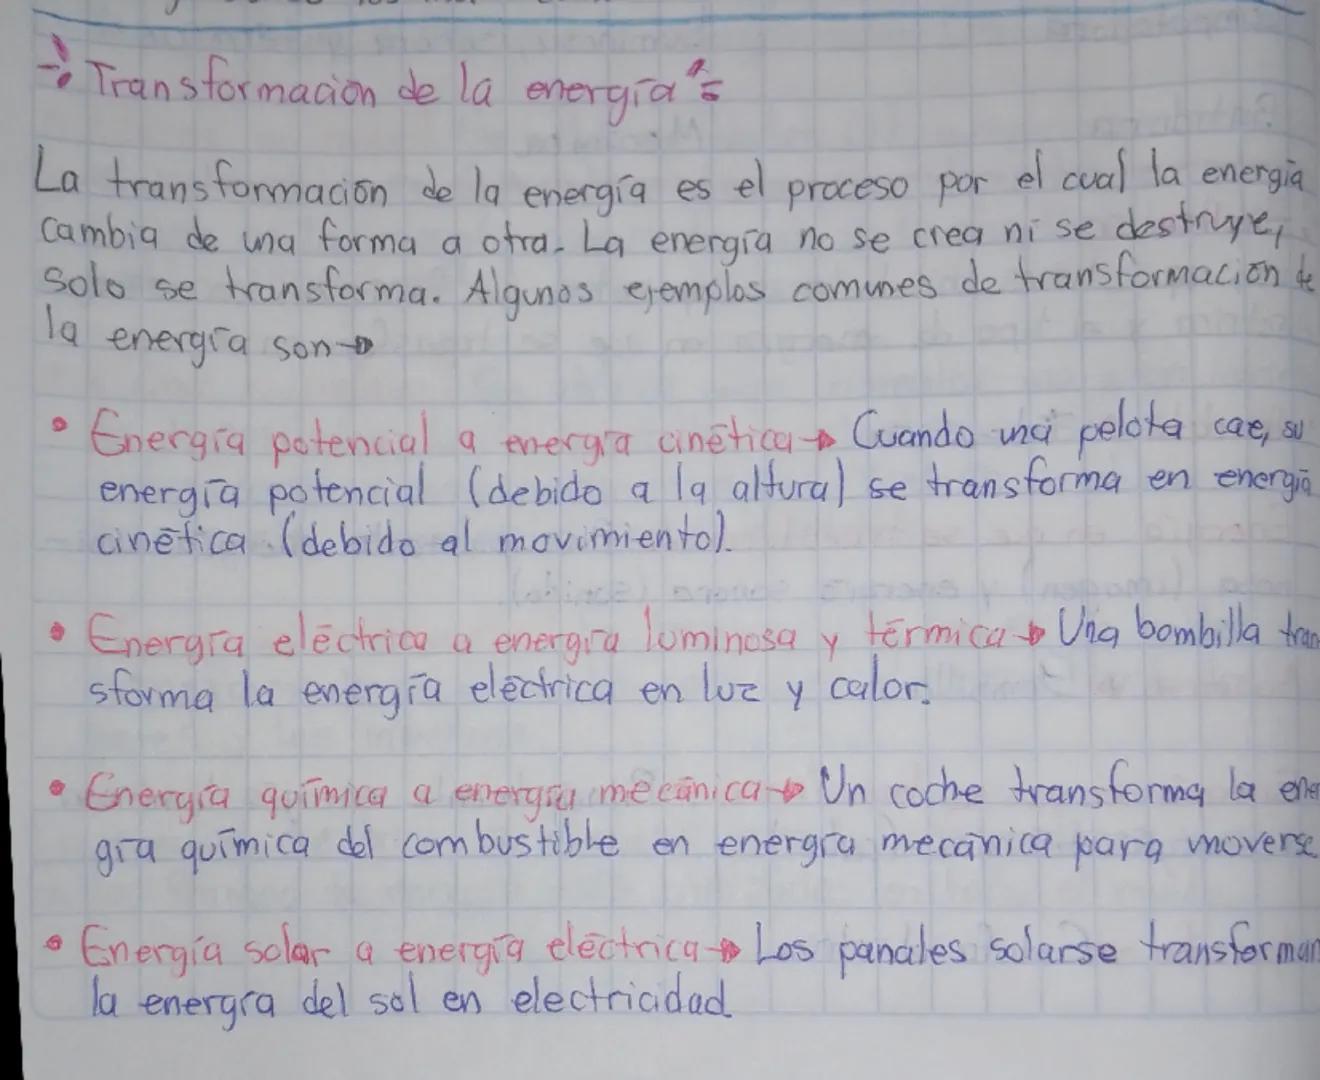 Transformación de la energía
La transformación de la energía es el proceso por el cual la energía
cambia de una forma a otra. La energía no se crea ni se destruye,
solo se transforma. Algunos ejemplos comunes de transformación de
la energía son→
• Energía potencial a energía cinética→ Cuando una pelota cae, su
energía potencial (debido a la altura) se transforma en energía
cinética (debido al movimiento).
• Energía eléctrica a energía luminosa y térmica→ Una bombilla tran
sforma la energía eléctrica en luz y calor.
• Energía química a energía mecánica→ Un coche transforma la ener
gía química del combustible en energía mecánica para moverse
• Energía solar a energía eléctrica→ Los panales solarse transforman
la energía del sol en electricidad